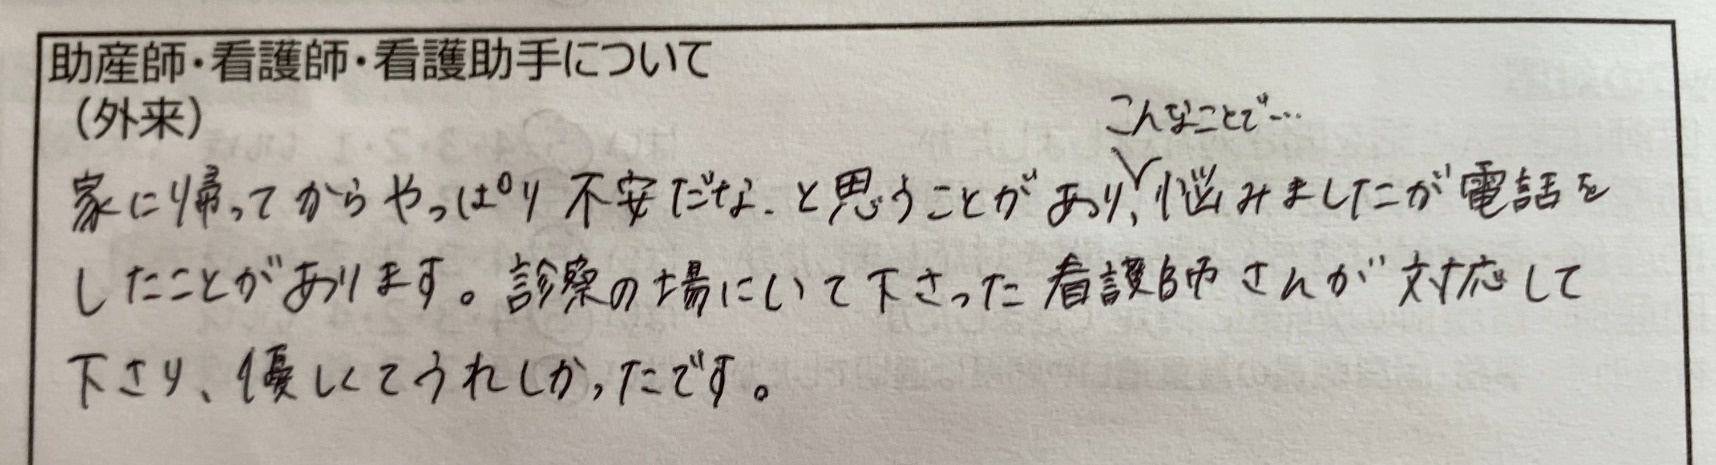 助産師・看護師・看護助手について
(外来)
こんなことで…
家に帰ってからやっぱり不安だな、と思うことがあり、悩みましたが電話を
したことがあります。診察の場にいて下さった看護師さんが対応して
下さり、優しくてうれしかったです。